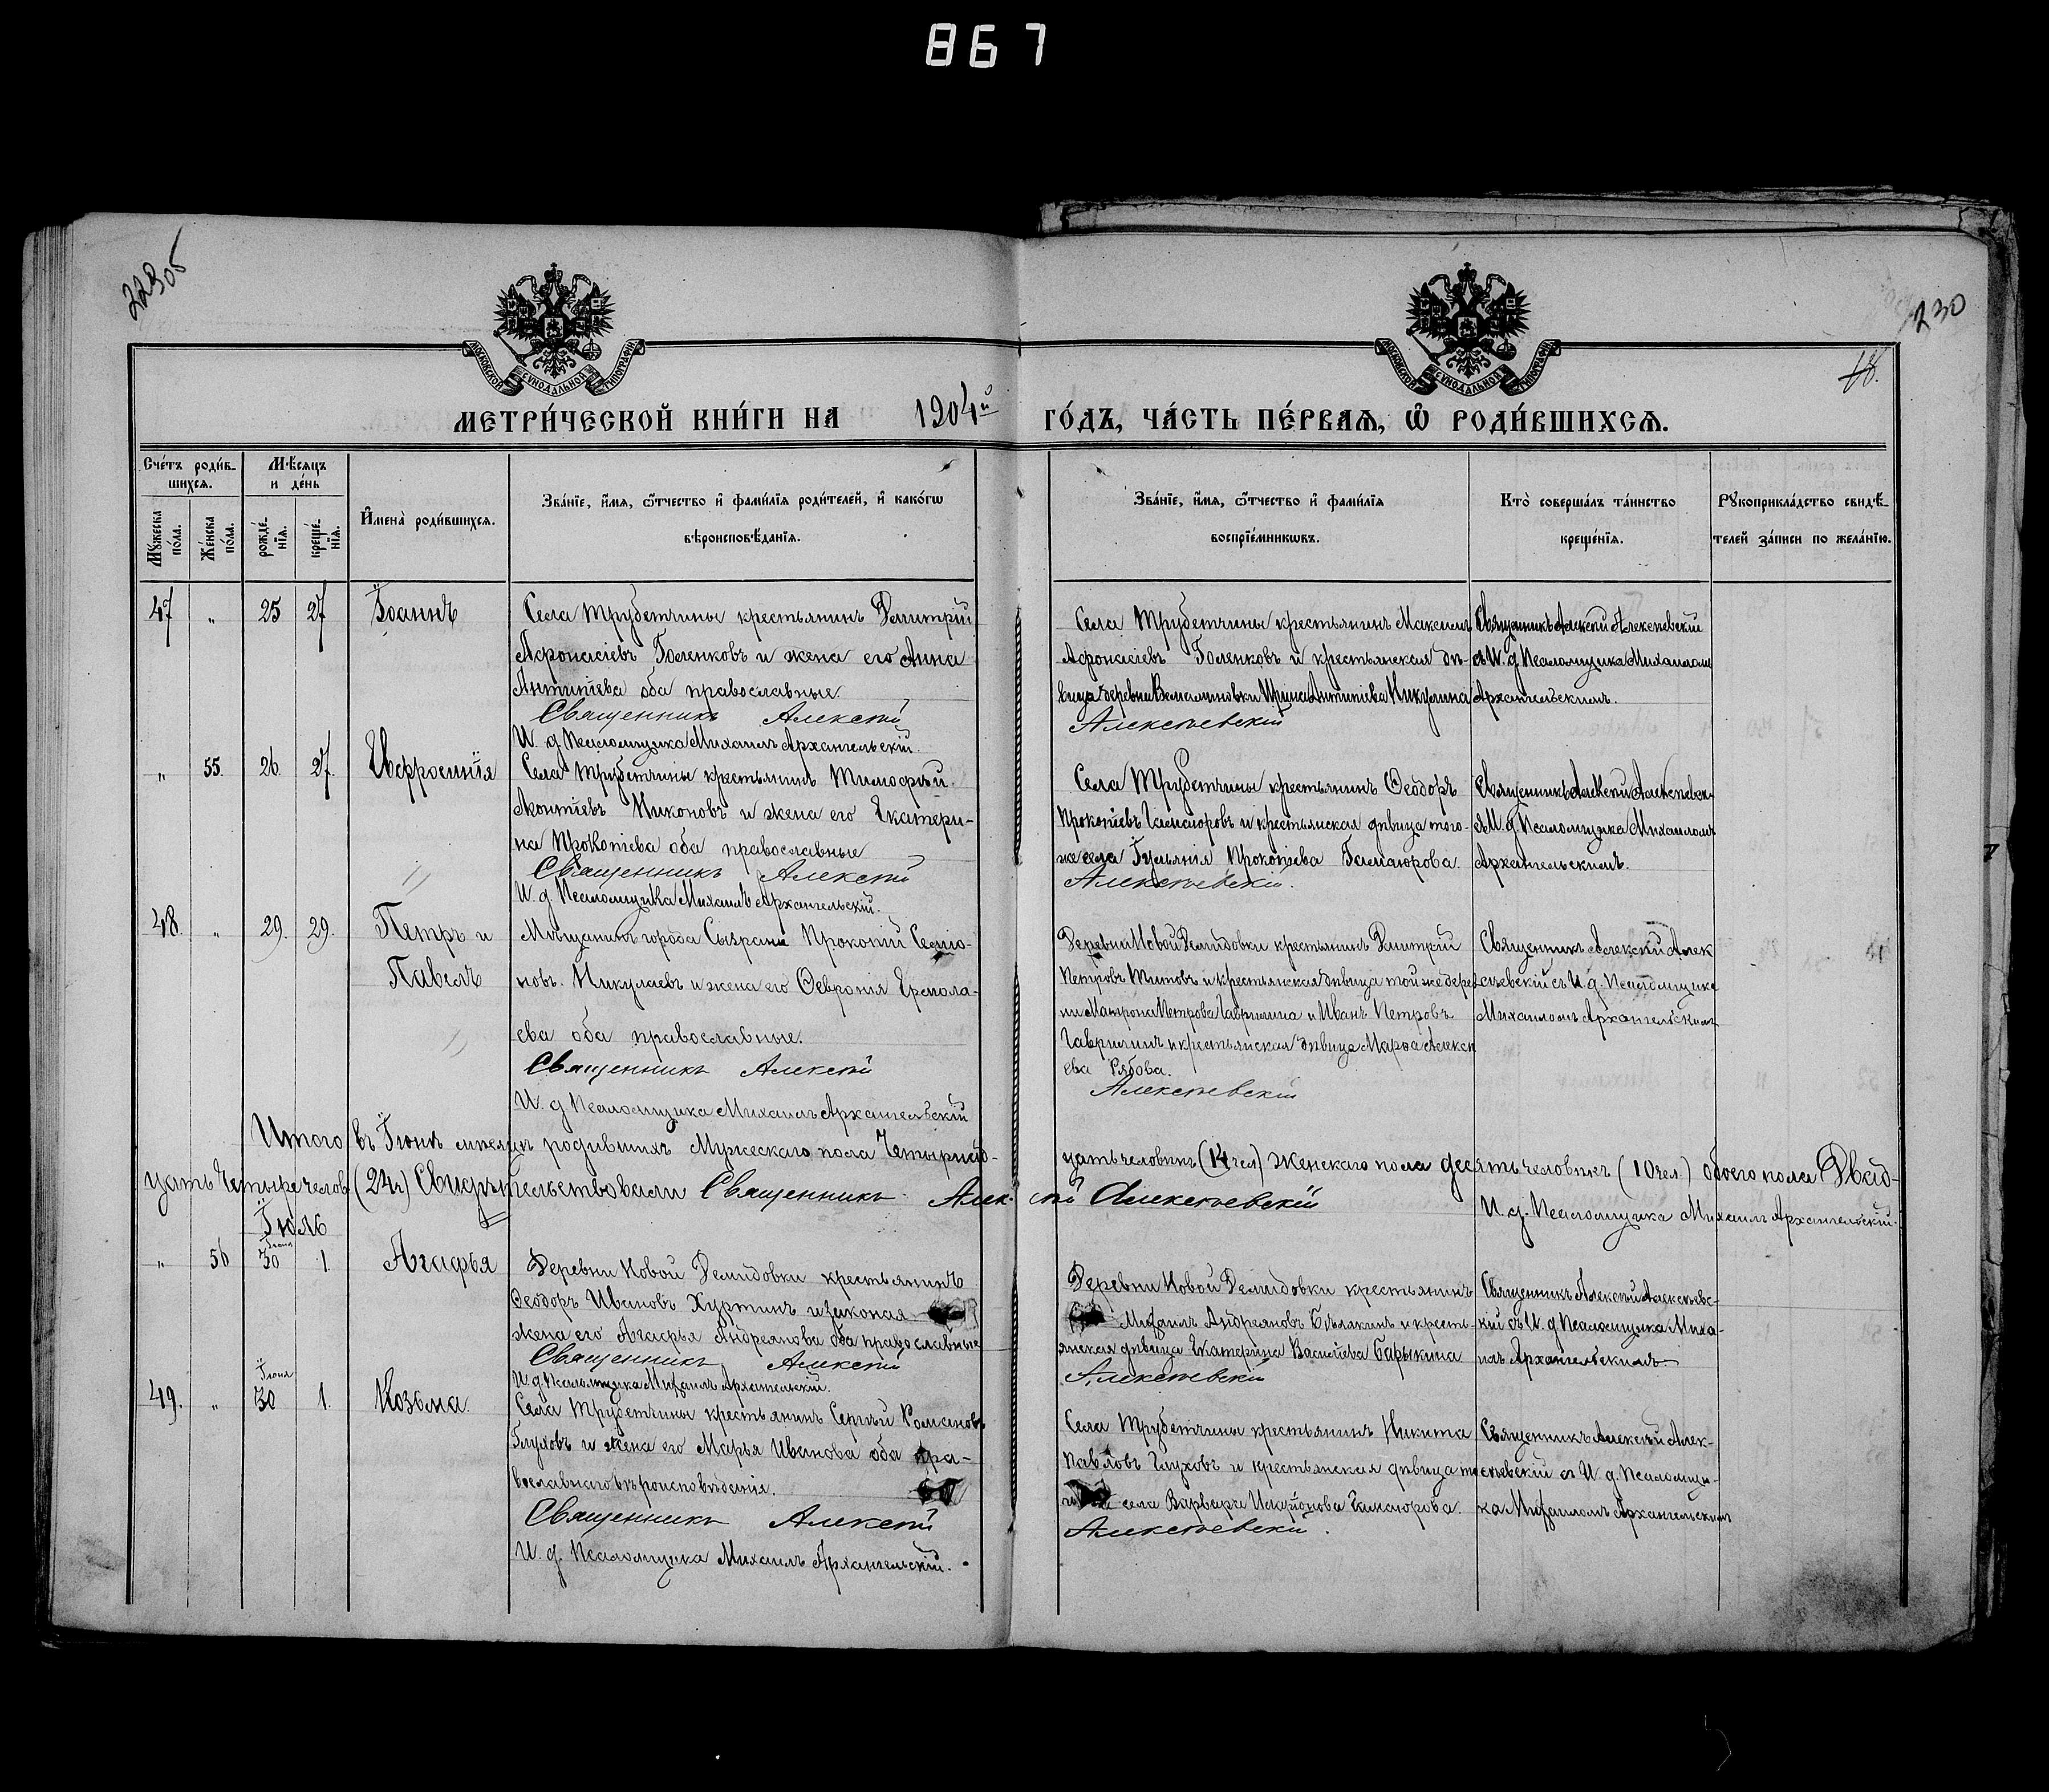 867
230
18.
МОСКОВСКОЙ СѴНОДАЛЬНОЙ ТИПОГРАФІИ
МОСКОВСКОЙ СѴНОДАЛЬНОЙ ТИПОГРАФІИ
МЕТРИ́ЧЕСКОЙ КНИ́ГИ НА 1904й ГО́ДЪ, ЧА́СТЬ ПЕ́РВАѦ, Ѡ҆ РОДИ́ВШИХСѦ.
Сче́тъ роди́в-
шихсѧ.
Мꙋ́жеска по́ла.
Же́нска по́ла.
Мѣ́сѧцъ
и де́нь
рожде́-
нїѧ.
креще́-
нїѧ.
И҆мена̀ роди́вшихсѧ.
Зва́нїе, и҆́мѧ, ѻ҆́тчество и҆ фами́лїѧ роди́телей, и҆ како́гѡ
вѣроисповѣ́данїѧ.
Зва́нїе, и҆́мѧ, ѻ҆́тчество и҆ фами́лїѧ
воспрїе́мникѡвъ.
Кто̀ соверша́лъ та́инство
креще́нїѧ.
Рꙋкоприкла́дство свидѣ́-
телей за́писи по жела́нїю.
47 „ 25 27 Іоаннъ
Села Трубетчины крестьянинъ Димитрій
Афонасіевъ Голенковъ и жена его Анна
Антипіева оба православные
Священникъ Алексій
И. д. Псаломщика Михаилъ Архангельскій.
Села Трубетчины крестьянинъ Максимъ
Афонасіевъ Голенковъ и крестьянская дѣ-
вица деревни Ирина Антипіева Никулина
Алексѣевскій
Священникъ Алексій Алексѣевскій
съ И. д. Псаломщика Михаиломъ
Архангельскимъ.
„ 55. 26. 27. Евфросинія
Села Трубетчины крестьянинъ Тимофѣй
Леонтіевъ Никоновъ и жена его Екатери-
на Прокопіева оба православные
Священникъ Алексій
И. д. Псаломщика Михаилъ Архангельскій.
Села Трубетчины крестьянинъ Ѳеодоръ
Прокопіевъ и крестьянская дѣвица того-
же села Прокопіева
Алексѣевскій.
Священникъ Алексій Алексѣевск-
съ И. д. Псаломщика Михаиломъ
Архангельскимъ.
48. „ 29. 29. Петръ и
Павелъ
Мѣщанинъ города Сызрани Прокопій Семіо-
новъ Никулаевъ и жена его Февронія Ермола-
ева оба православные.
Священникъ Алексій
И. д. Псаломщика Михаилъ Архангельскій
Деревни Новой Демидовки крестьянинъ Димитрій
Петровъ Титовъ и крестьянская дѣвица той же дерев
ни Матрона Петрова Гаврилина и Иванъ Петровъ
Гаврилинъ и крестьянская дѣвица Марѳа Алексі
ева Рябова.
Алексѣевскій
Священникъ Алексій Алек
сѣевскій съ И. д. Псаломщика
Михаиломъ Архангельскимъ
Итого въ Іюнѣ мѣсяцѣ родившихъ Мужескаго пола Четырнад-
цать человѣкъ (14 чел) Женскаго пола десять человѣкъ (10 чел.) обоего пола Двад-
цать Четыре челов (24ч) Свидѣтельствовали Священникъ Алексій Алексѣевскій
И. д. Псаломщика Михаилъ Архангельскій.
Іюль
„ 56 Іюня 30 1 Агафья
Деревни Новой Демидовки крестьянинъ
Ѳеодоръ Ивановъ Хуртинъ и законая
жена его Агафья Андреянова оба православные
Священникъ Алексій
И. д. Псаломщика Михаилъ Архангельскій.
Деревни Новой Демидовки крестьянинъ
Михаилъ Андреяновъ Бѣлякинъ и кресть-
янская дѣвица Екатерина Василіева Барыкина
Алексѣевскій
Священникъ Алексій Алексѣевс-
кій съ И. д Псаломщика Миха-
илъ Архангельскимъ
49. „ Іюня 30 1. Козьма.
Села Трубетчины крестьянинъ Сергѣй Романовъ
Глуховъ и жена его Марья Иванова оба пра-
вославнаго вѣроисповѣденія.
Священникъ Алексій
И. д. Псаломщика Михаилъ Архангельскій.
Села Трубетчины крестьянинъ Никита
Павловъ Глуховъ и крестьянская дѣвица то
села Варвара
Алексѣевскій.
Священникъ Алексій Алек-
сѣевскій съ И. д. Псаломщи-
ка Михаиломъ Архангельскимъ